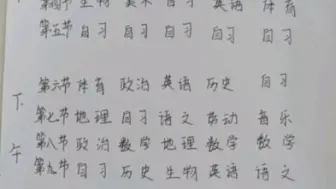 第四节 生物 美术 自习 英语 体育
第五节 自习 自习 自习 自习 自习
第六节 体育 政治 英语 历史 自习
下
第七节 地理 自习 语文 劳动 音乐
第八节 政治 数学 地理 数学 数学
午
第九节 自习 历史 生物 英语 语文